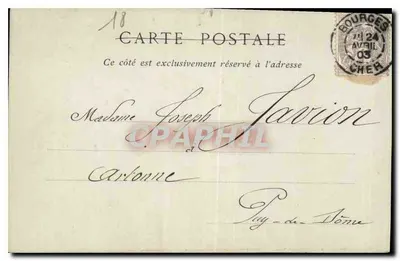 18
CARTE POSTALE
BOURGES
24
AVRIL
03
CHER
Ce côté est exclusivement réservé à l'adresse
Madame Joseph Javion
CPAPHIL
à
Artonne
Puy-de-Dôme